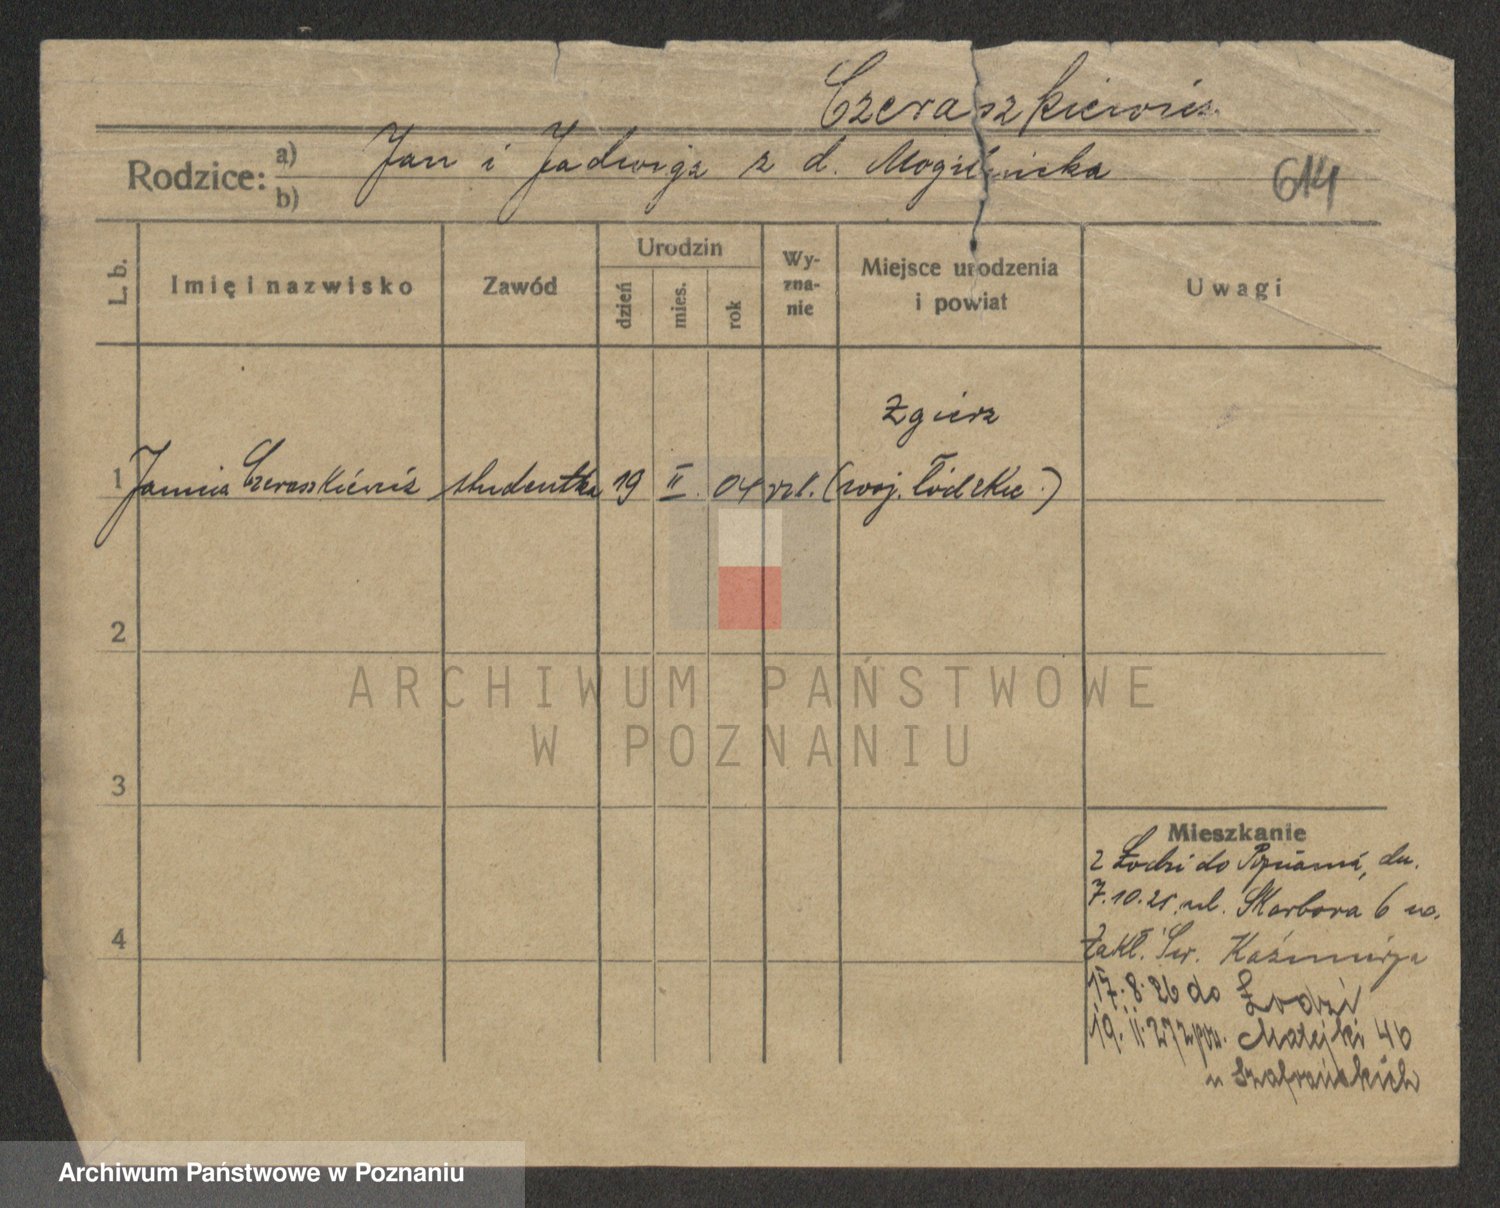 Czeraszkiewicz
Rodzice: a) Jan i Jadwiga z d. Mogilnicka
b)
614
L. b. Imię i nazwisko Zawód Urodzin dzień mies. rok Wy-zna-nie Miejsce urodzenia i powiat Uwagi
Zgierz
1 Janina Czeraszkiewicz studentka 19 II. 04 rzk. (woj. Łódzkie.)
2
ARCHIWUM PAŃSTWOWE
W POZNANIU
3
Mieszkanie
z Łodzi do Poznania, dn.
7.10.25. ul. Skarbowa 6 w.
4
Zakł. Św. Kaźmierza
17.8.26 do Łodzi
19. II. 27 z pow. Matejki 46
u Szafrańskich
Archiwum Państwowe w Poznaniu